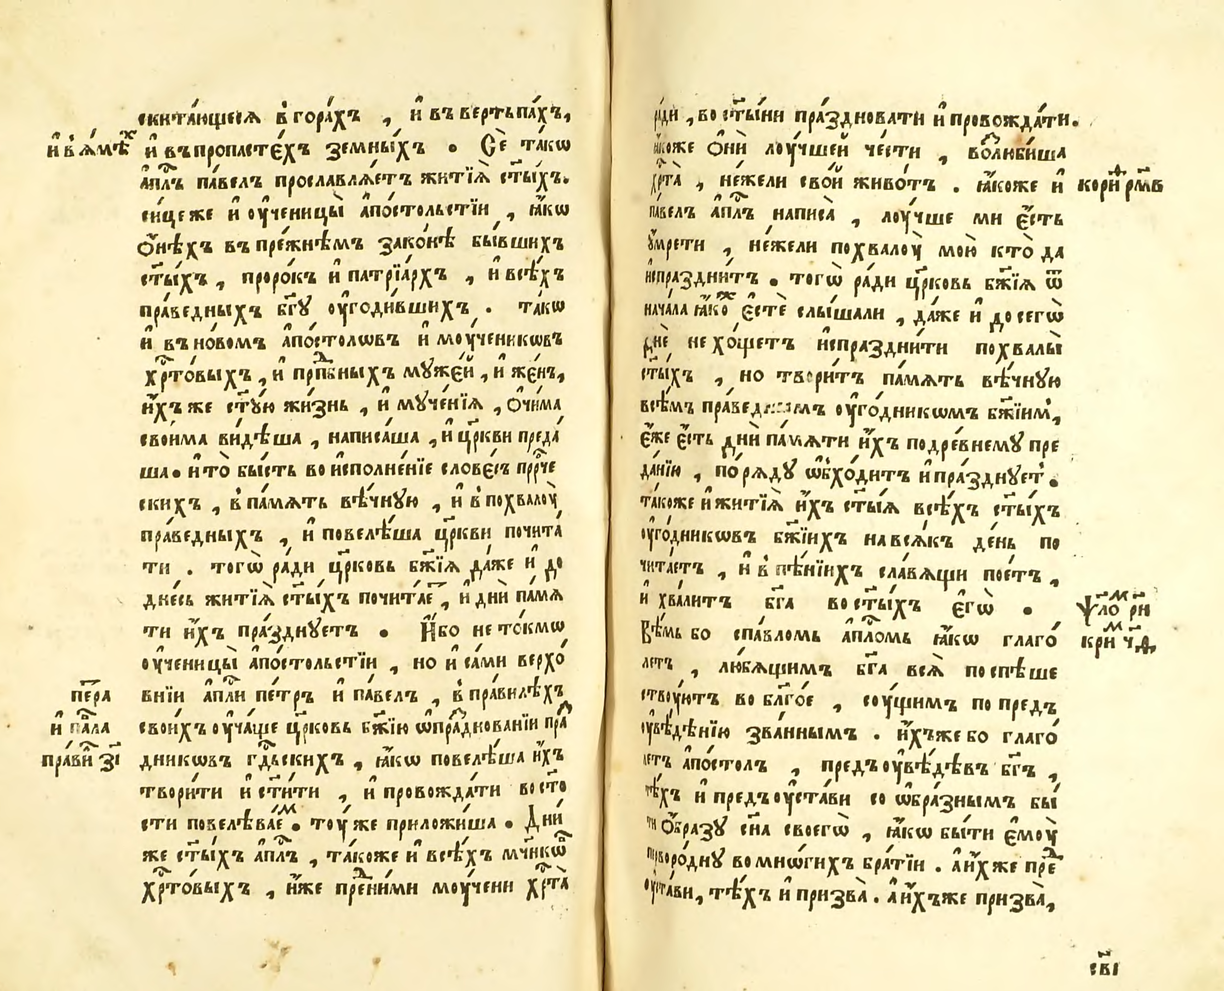 скита́ющеся в гора́хъ , и҆ въ верте́пахъ,
и҆ в ꙗ҆́мѣⷯ
и҆ въ пропастє́хъ земны́хъ . Сѐ та́кѡ
а҆п҃лъ па́велъ прославлѧ́етъ житїѧ̀ ст҃ы́хъ.
сице же и҆ оу҆ченицы̀ а҆по́стольстїи , ꙗ҆́кѡ
ѻ҆нѣхъ въ пре́жнѣмъ зако́нѣ бы́вшихъ
ст҃ы́хъ , проро́къ и҆ патрїа́рхъ , и҆ всѣ́хъ
пра́ведныхъ бг҃ꙋ оу҆годи́вшихъ . та́кѡ
и҆ въ но́вомъ а҆по́столѡвъ и҆ моу́ченикѡвъ
хрⷭ҇то́выхъ , и҆ прпⷣбныхъ мꙋже́й , и҆ же́нъ,
и҆́хъ же ст҃ꙋ́ю жи́знь , и҆ мꙋче́нїѧ , ѻ҆чи́ма
свои́ма ви́дѣша , написа́ша , и҆ цр҃кви преда́
ша . и҆ то̀ бы́сть во и҆сполне́нїе слове́съ прⷪ҇рче
скихъ , в па́мѧть вѣ́чнꙋю , и҆ в похвалоу̀
пра́ведныхъ , и҆ повелѣ́ша цр҃кви почита́
ти . тогѡ̀ ра́ди цр҃ковь бж҃їѧ да́же и҆ до
дне́сь житїѧ̀ ст҃ы́хъ почита́еⷮ , и҆ днѝ па́мѧ
ти и҆́хъ пра́зднꙋетъ . И҆́бо не то́кмѡ
оу҆ченицы̀ а҆по́стольстїи , но и҆ са́ми верхо́
внїи а҆пⷭ҇ли пе́тръ и҆ па́велъ , в пра́вилѣхъ
пе́ра
и҆ па́ла
прави҆ з҃і
свои́хъ оу҆ча́ще цр҃ковь бж҃їю ѡ҆ пра́зднованїи праⷥ
дникѡвъ гдⷭ҇ьскихъ , ꙗ҆́кѡ повелѣ́ша и҆́хъ
твори́ти и҆ ст҃и́ти , и҆ провожда́ти во ст҃о
сти повелѣва́еⷨ . тоу́ же приложи́ша . Днѝ
же ст҃ы́хъ а҆пⷭ҇лъ , та́коже и҆ всѣ́хъ мчⷭ҇нкѡⷡ
хрⷭ҇то́выхъ , и҆́же преⷣ ни́ми моу́чени хрⷭ҇та̀
ра́ди , во ст҃ы́ни пра́здновати и҆ провожда́ти.
ꙗ҆́коже ѻ҆нѝ лоу́чшей че́сти , возлюби́ша
хрⷭ҇та̀ , не́жели сво́й живо́тъ . ꙗ҆́коже и҆
павелъ а҆пⷭ҇лъ написа̀ , лоу́чше ми є҆́сть
оу҆мрети , не́жели похвалоу̀ мою̀ кто̀ да
и҆спраздни́тъ . тогѡ̀ ра́ди цр҃ковь бж҃їѧ ѿ
нача́ла ꙗ҆́коⷤ є҆стѐ слы́шали , да́же и҆ до сегѡ̀
дн҃е не хо́щетъ и҆спраздни́ти похвалы̀
ст҃ы́хъ , но твори́тъ па́мѧть вѣ́чнꙋю
всѣ́мъ пра́ведным оу҆го́дникѡмъ бж҃їимъ,
є҆́же є҆́сть днѝ па́мѧти и҆́хъ по дре́внемꙋ пре
да́нїю , по рѧ́дꙋ ѡ҆бхо́дитъ и҆ пра́зднꙋетъ .
та́коже и҆ житїѧ̀ и҆́хъ ст҃ы́ѧ всѣ́хъ ст҃ы́хъ
оу҆го́дникѡвъ бж҃їихъ на всѧ́къ де́нь по
чита́етъ , и҆ в пѣ́нїихъ сла́вѧщи пое́тъ ,
и҆ хва́литъ бг҃а во ст҃ы́хъ є҆гѡ̀ .
ѱало́ⷨ рн
Вѣ́мь бо с па́вломъ а҆пⷭ҇ломъ ꙗ҆́кѡ глаго́
летъ , лю́бѧщимъ бг҃а всѧ̀ поспѣ́ше
ствꙋютъ во бл҃го́е , соу́щимъ по предъ
оу҆вѣ́дѣнїю зва́ннымъ . и҆́хъже бо глаго́
летъ а҆по́столъ , предъоу҆вѣ́дѣвъ бг҃ъ ,
тѣ́хъ и҆ предъоу҆ста́ви соѡбра́знымъ бы́
ти ѻ҆́бразꙋ сн҃а своегѡ̀ , ꙗ҆́кѡ бы́ти є҆моу̀
перворо́днꙋ во мно́гихъ бра́тїи . а҆ и҆́хже преⷣ
оу҆ста́ви , тѣ́хъ и҆ призва̀ . а҆ и҆́хъже призва̀,
св҃і